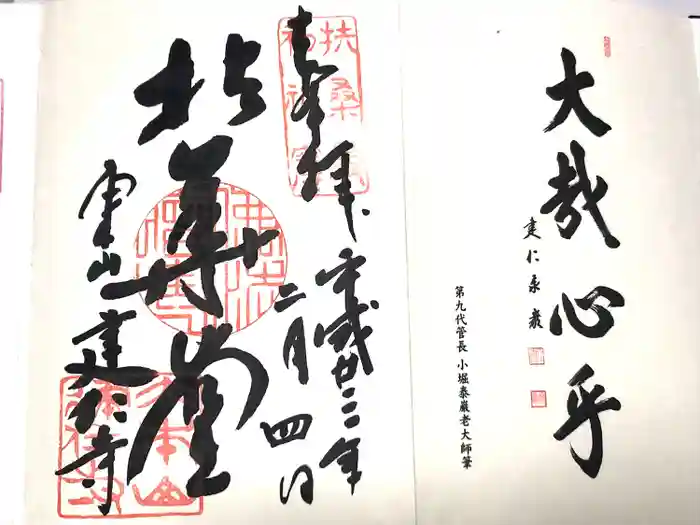 大哉心乎
建仁泰巖
第九代管長 小堀泰巖老大師筆
奉拝
平成廿三年
二月四日
拈華堂
東山建仁寺
扶桑